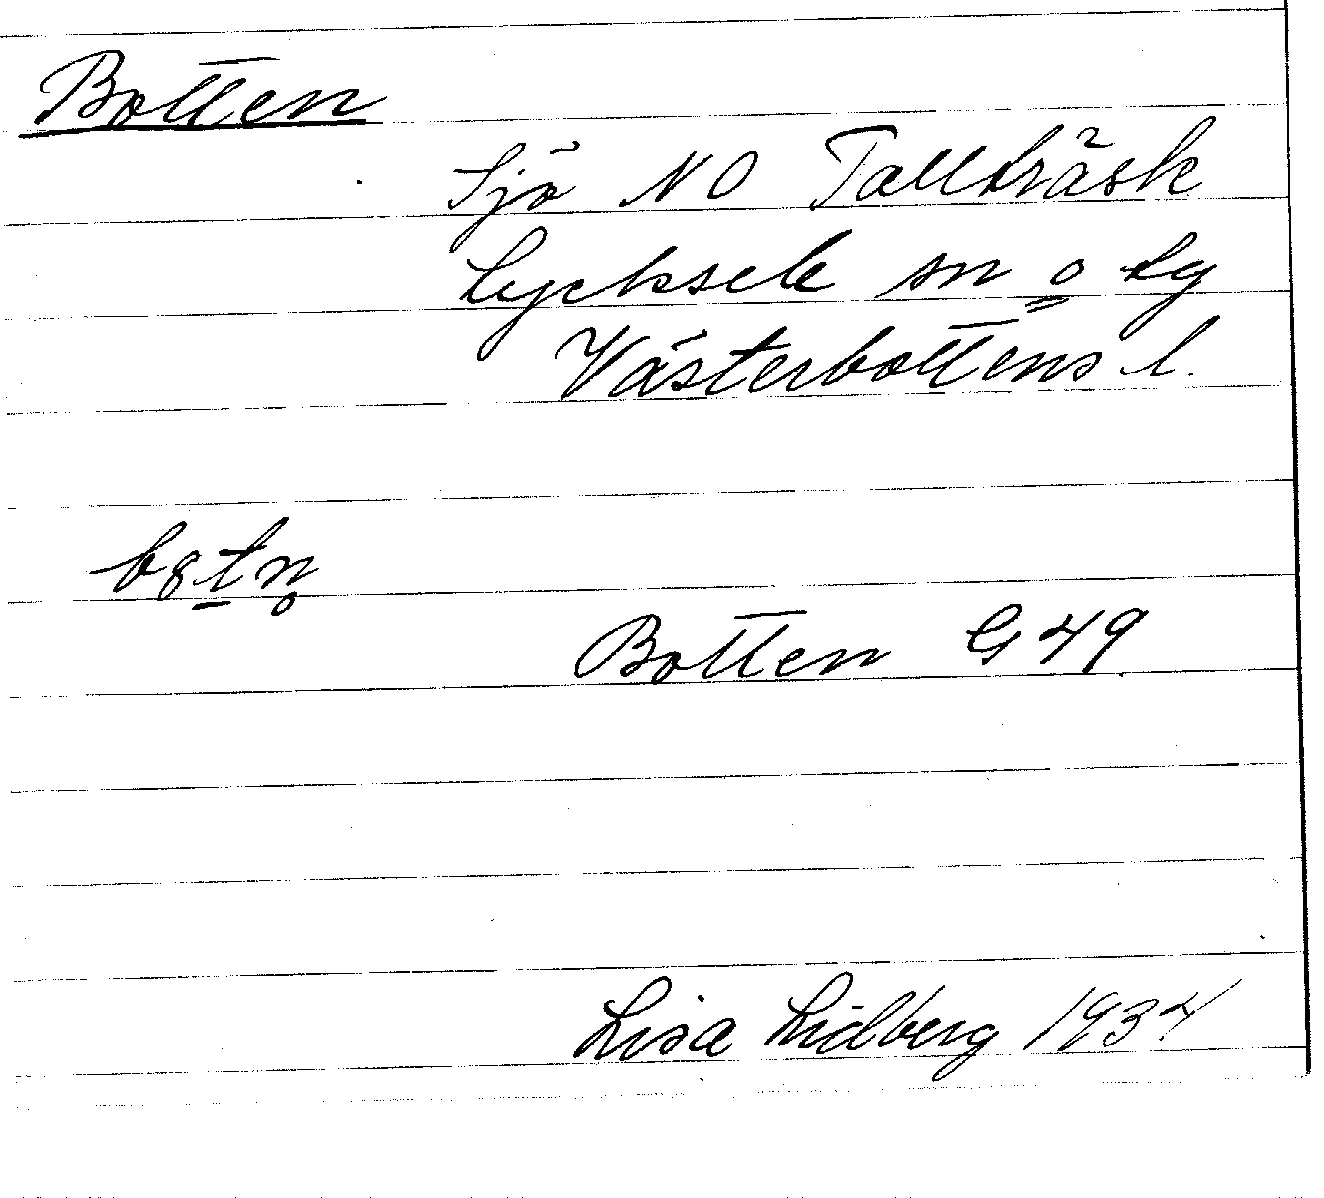 Botten
Sjö NO Tallträsk
Lycksele sn o lg
Västerbottens l.
b8tn̥
Botten G49
Lisa Lidberg 1934